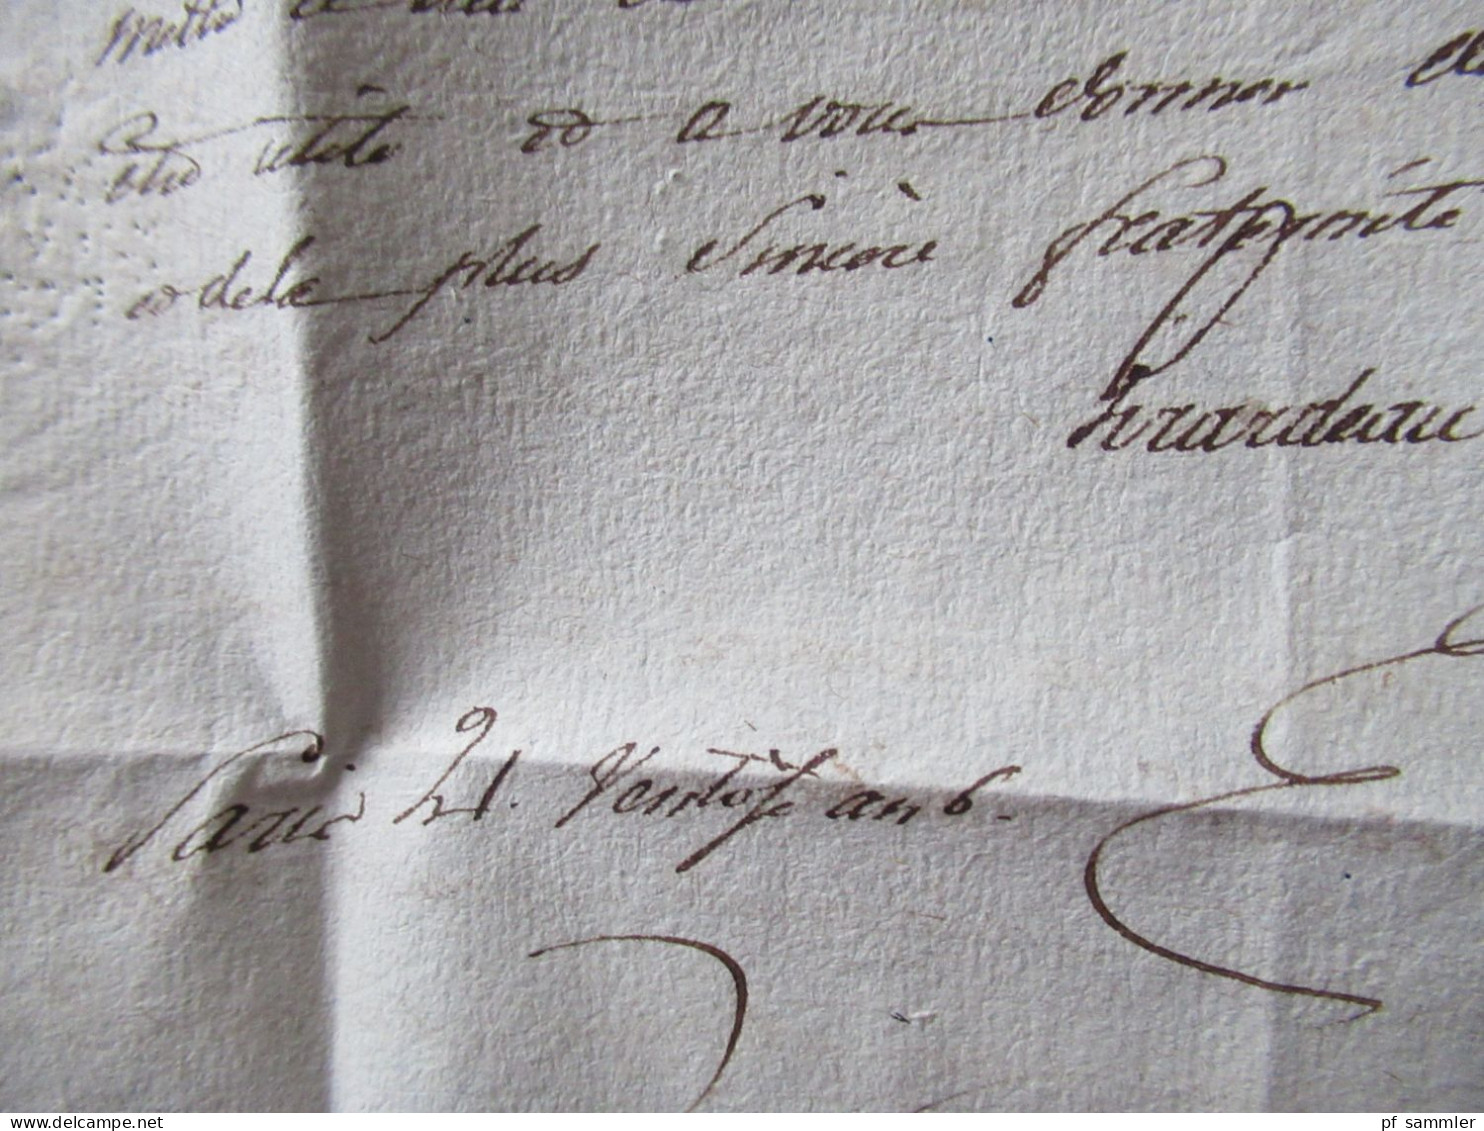 etre utile et a vous donner de
et dela plus Sincere fraternité
Girardeau
Paris 21. Ventose an 6.
www.delcampe.net
pf_sammler